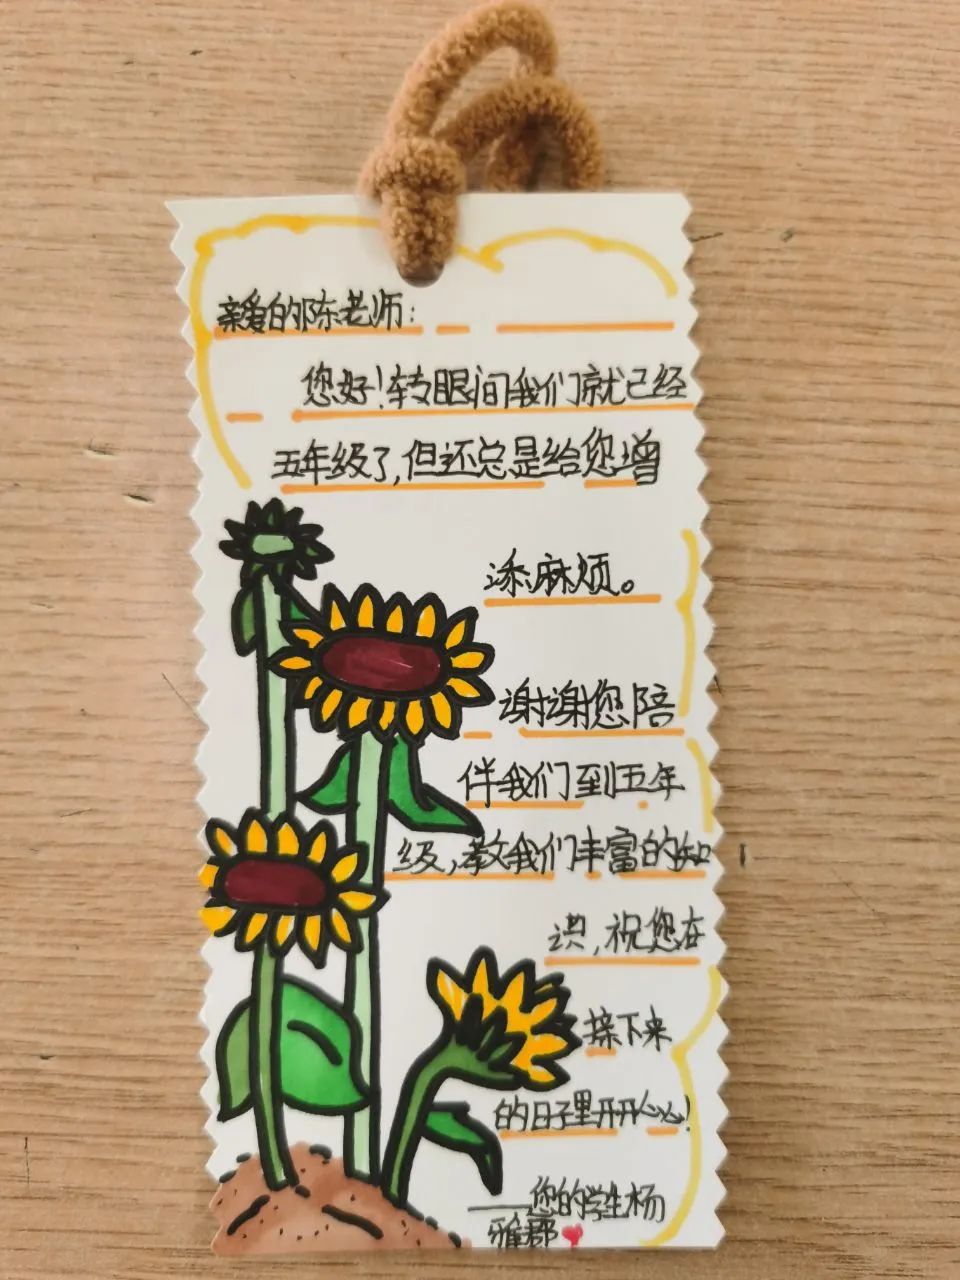 亲爱的陈老师:
您好!转眼间我们就已经
五年级了,但还总是给您增
添麻烦。
谢谢您陪
伴我们到五年
级,教我们丰富的知
识,祝您在
接下来
的日子里开开心心!
——您的学生杨
雅郡